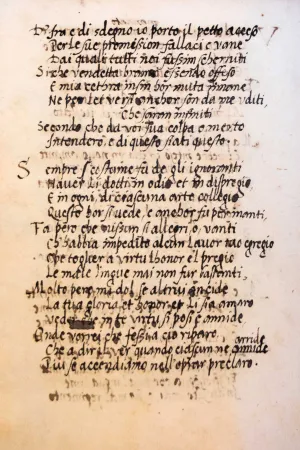 D'ira e di sdegno io porto il petto acceso
Per le sue promession fallaci e vane
Dai quali tutti noi fussim scherniti
Si che vendetta bramo essendo offeso
E mia cethra in fin hor muta rimane
Ne per lei versi anchor son da me uditi,
Che saran infiniti
Secondo che da voi sua colpa o merto
Intenderò, e di questo siati questo.
Sempre e costume fù de gli ignoranti
Haver li dotti in odio et in dispregio
E in ogni, di ciascuna arte collegio
Questo hor si vede, e anchor fu per inanti,
Fa però che nissun si allegri o, vanti
Ch'habbia impedito alcun lavor tuo egregio
Che toglier a virtù l'honor e'l pregio
Le male lingue mai non fur bastanti,
Molto però mi dol se altrui ancide
La tua gloria et li sia amaro
in te virtù si posi e annide
Onde vorrei che fessi a ciò riparo
annide
Che a dir il ver quando ciascun ne
Qui se accendiamo nell'oprar preclaro.